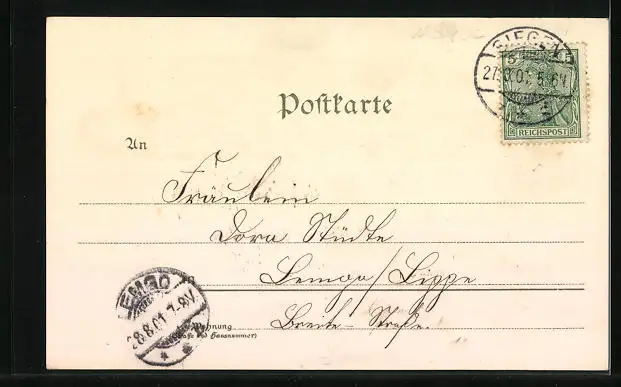 SIEGEN
5 5
27.8.01. 5-6N
REICHSPOST
Postkarte
An
Fräulein
Dora Stüdte
in Lemgo/Lippe
Breite-Straße.
Wohnung
(Straße und Hausnummer)
LEMGO
28.8.01.7-8V